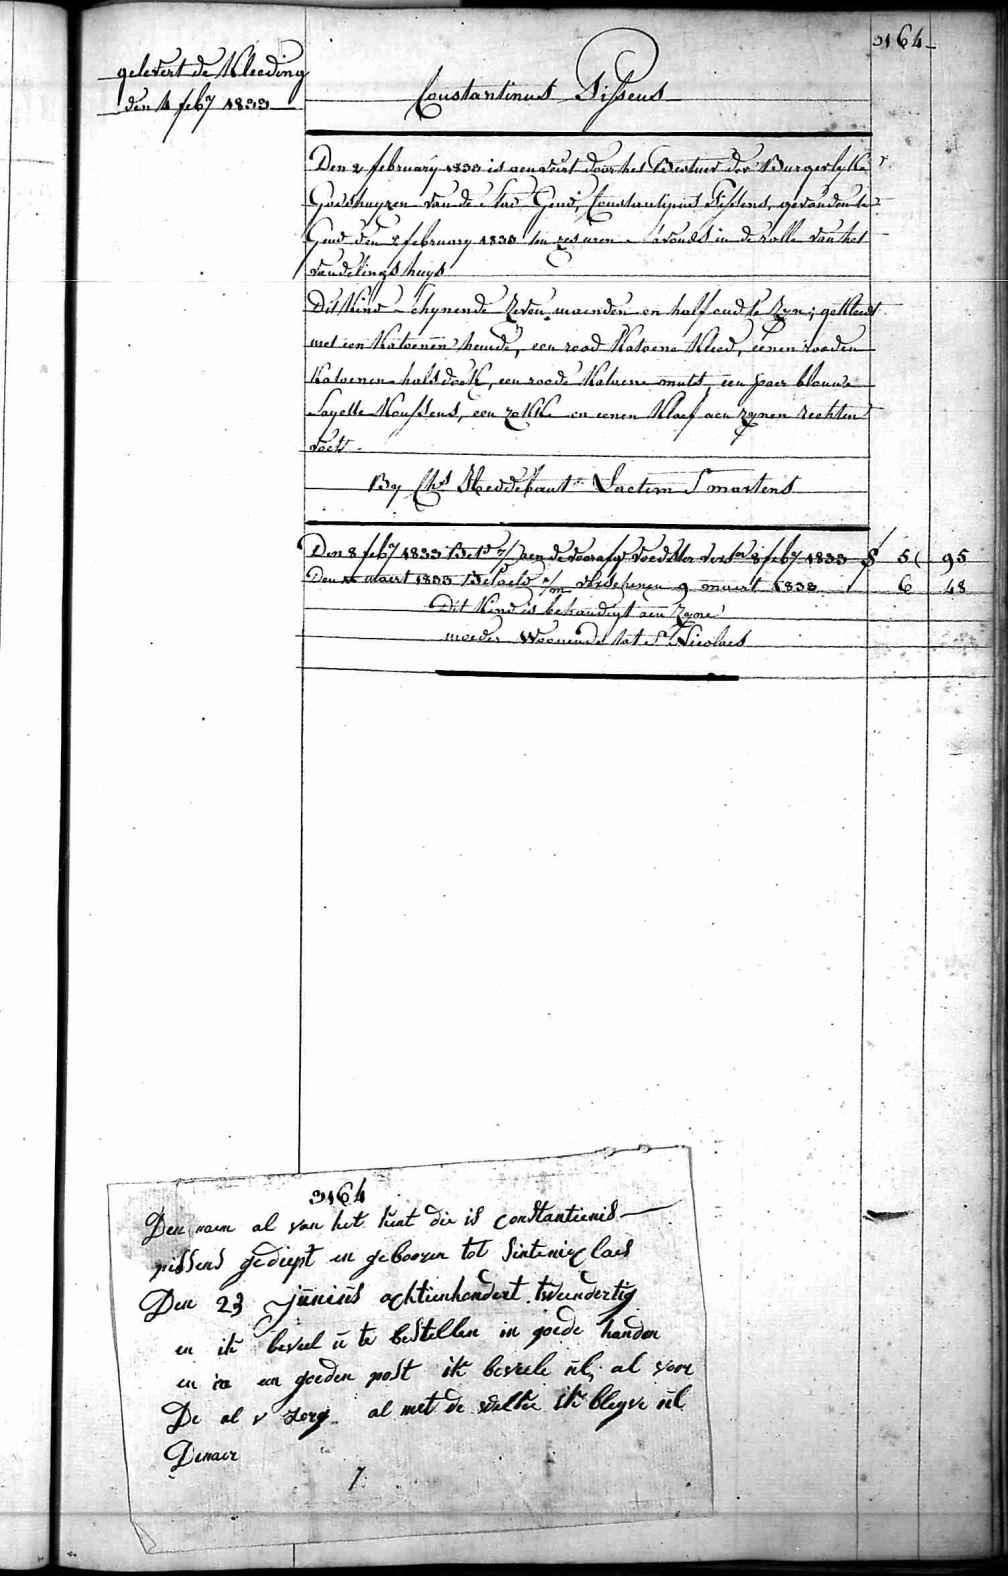 3164
gelevert de Kleeding
den 4 feby 1833
Constantinus Pissens
Den 2 february 1833 is aenveirt door het Bestuer der Burgerlyke
Godshuyzen van de stad Gend, Constantinus Pissens, gevonden te
Gend den 2 february 1833 ten zes uren s'avonds in de rolle van het
vondelings huys
Dit Kind schynende zeven maenden en half oud te zyn; gekleed
met een Katoenen hemde, een rood Katoene Kleed, eenen rooden
Katoenen halsdoek, een roode Katoene muts, een paer blauwe
Sayette Koussens, een zokke en eenen Klaef aen zynen rechten
voet.
By Chs Laetem Smartens
Den 8 feby 1833 aen de voorafgn voedster vers 8 feby 1833 5 95
Den maert 1833 Betaeld verschenen 9 maert 1833 6 48
Dit Kind is behandigt aen zyne
moeder Woonende tot St Nicolaes
3164
Den naem al van het kint die is constantienis
pissens gediept en gebooren tot sinteniclaes
Den 23 junius achtienhondert tweendertig
en ik beveel u te bestellen in goede handen
en in een goeden post ik beveele ul al voor
De al v zorg al met de welke ik blyve ul
Dinaer